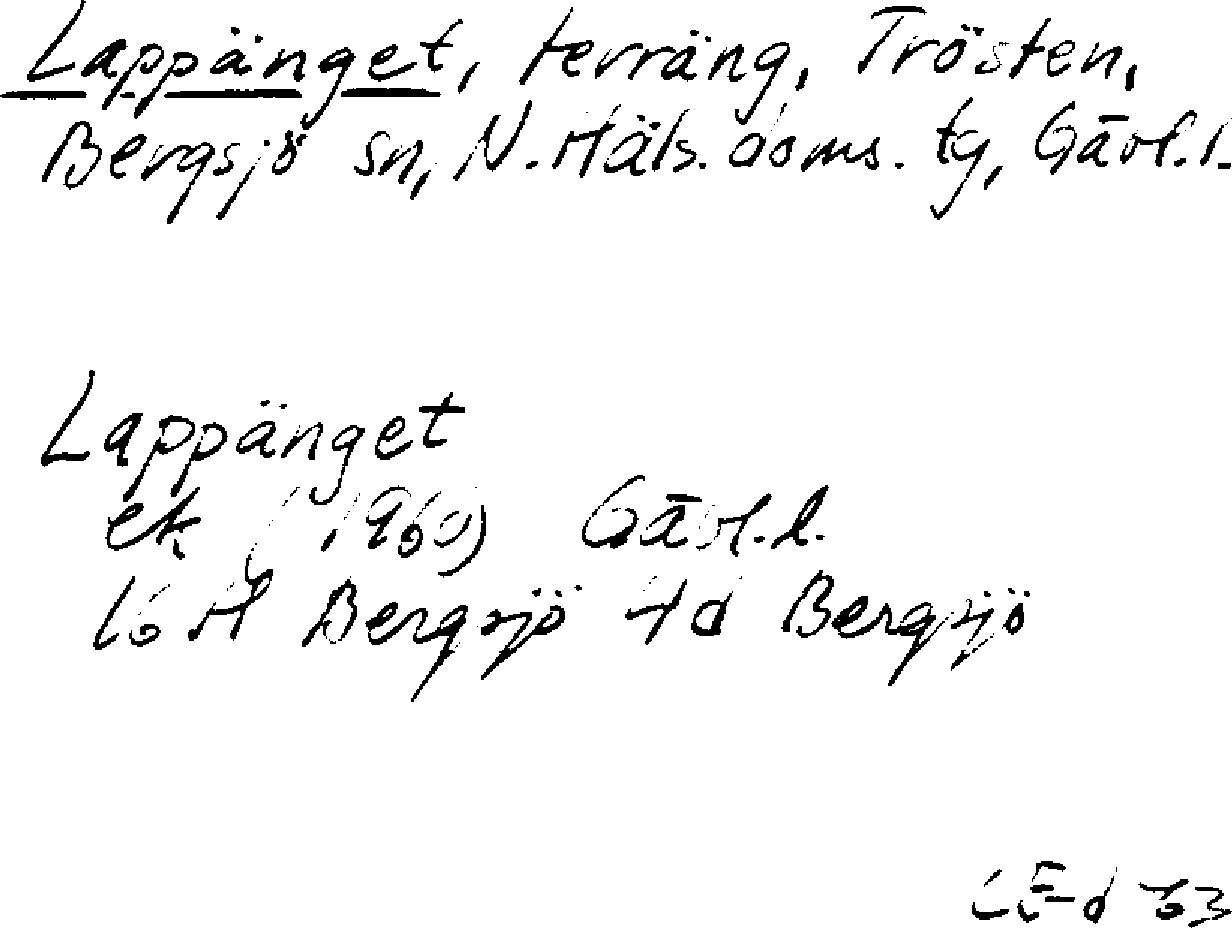 Lappänget, terräng, Trösten,
Bergsjö sn, N. Häls. doms. tg, Gävl. l.
Lappänget
ek (1960) Gävl. l.
16 H Bergsjö 4d Bergsjö